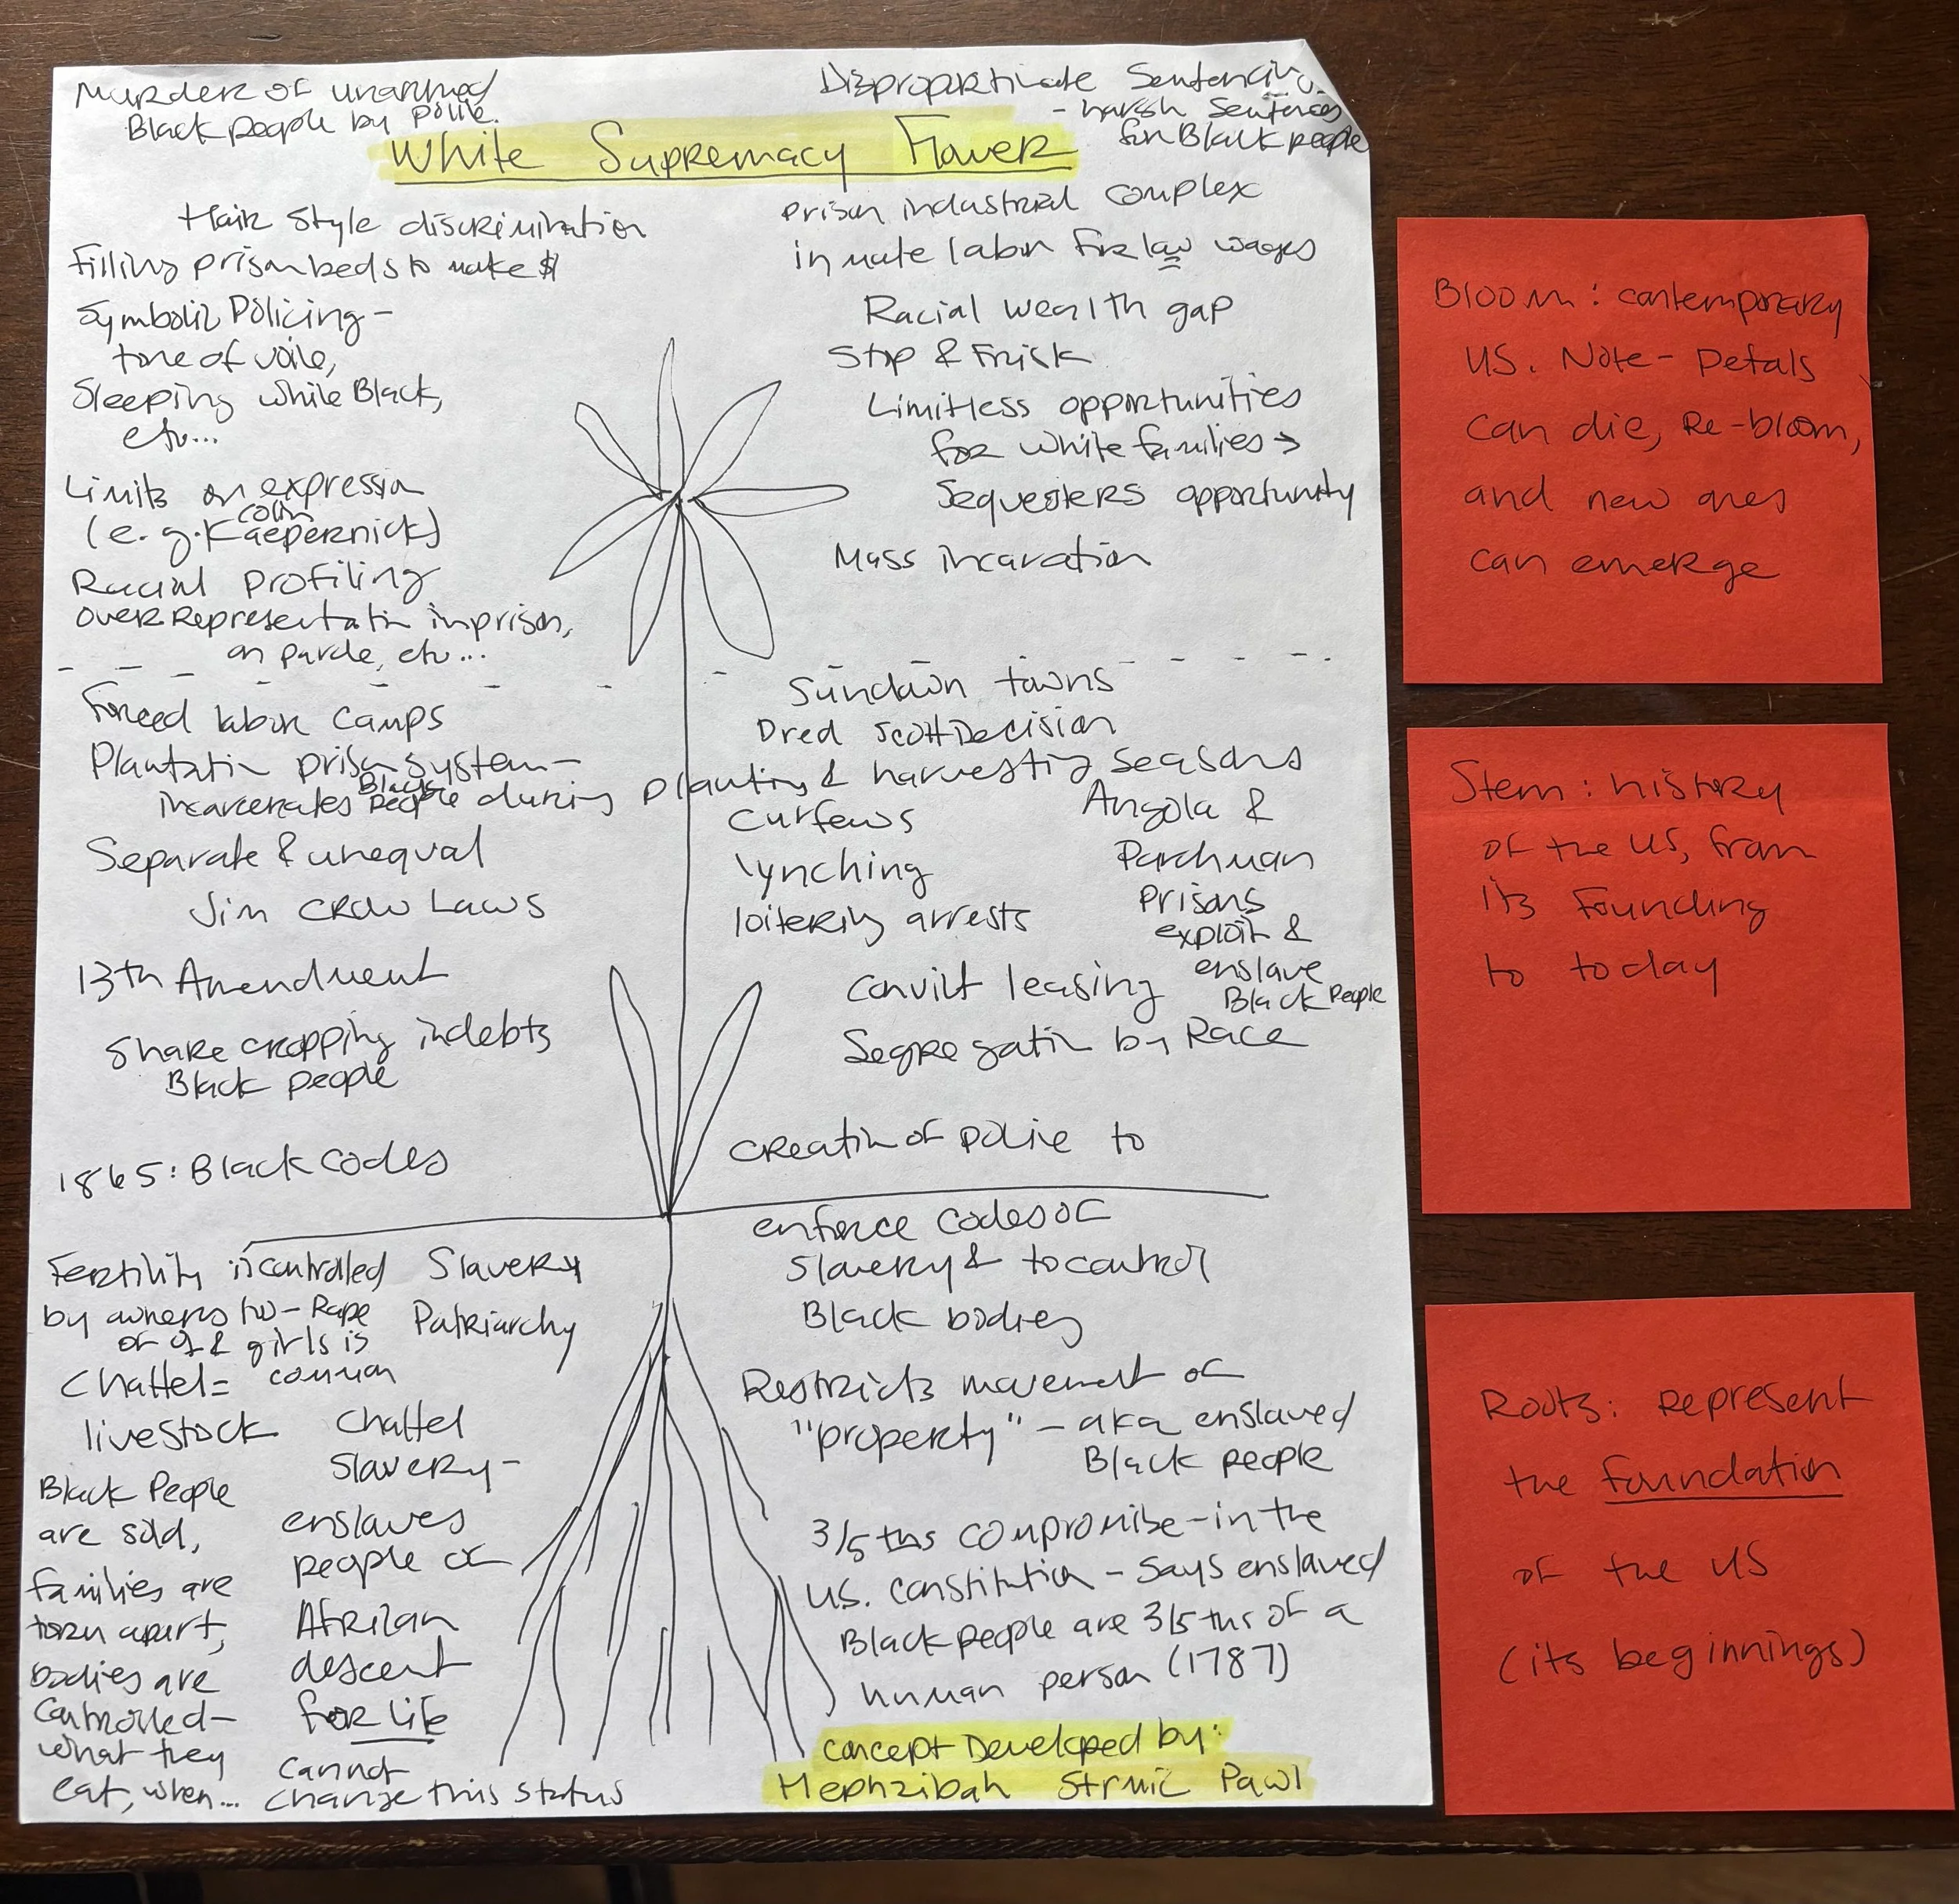 Murder of unarmed
Black people by police.
Disproportinate Sentencing
- harsh sentences
for Black people
White Supremacy Flower
Hair Style discrimination
Filling prison beds to make $
Symbolic Policing -
tone of voice,
Sleeping while Black,
etc...
Limits on expression
(e.g. Colin Kaepernick)
Racial Profiling
over Representation in prison,
on parole, etc...
prison industrial complex
inmate labor for low wages
Racial wealth gap
Stop & Frisk
Limitless opportunities
for white families →
Sequesters opportunity
Mass incaration
Forced labor camps
Plantation prison system -
incarcerates Black people during planting & harvesting seasons
Separate & unequal
Jim Crow Laws
13th Amendment
Share cropping indebts
Black people
1865: Black Codes
Sundown towns
Dred Scott Decision
Curfews
lynching
loitering arrests
Angola &
Parchman
Prisons
exploit &
enslave
Black People
Convict leasing
Segregation by Race
Creation of police to
enforce codes of
Slavery & to control
Black bodies
Restricts movement of
"property" - aka enslaved
Black people
3/5ths compromise - in the
U.S. Constitution - Says enslaved
Black people are 3/5ths of a
human person (1787)
Fertility is controlled
by owners too - Rape
of ♀ & girls is
common
Chattel =
livestock
Black People
are sold,
families are
torn apart,
bodies are
Controlled -
what they
eat, when...
Slavery
Patriarchy
Chattel
Slavery -
enslaves
people of
African
descent
for Life
cannot
change this status
Concept Developed by:
Hephzibah Strmic Pawl
Bloom: contemporary
US. Note - Petals
can die, Re-bloom,
and new ones
can emerge
Stem: history
of the US, from
its Founding
to today
Roots: Represent
the foundation
of the US
(its beginnings)